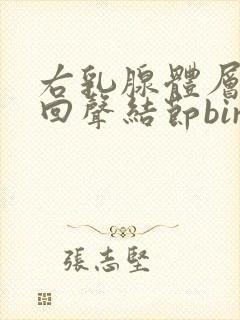 右乳腺體層
回聲結節bir
張志堅